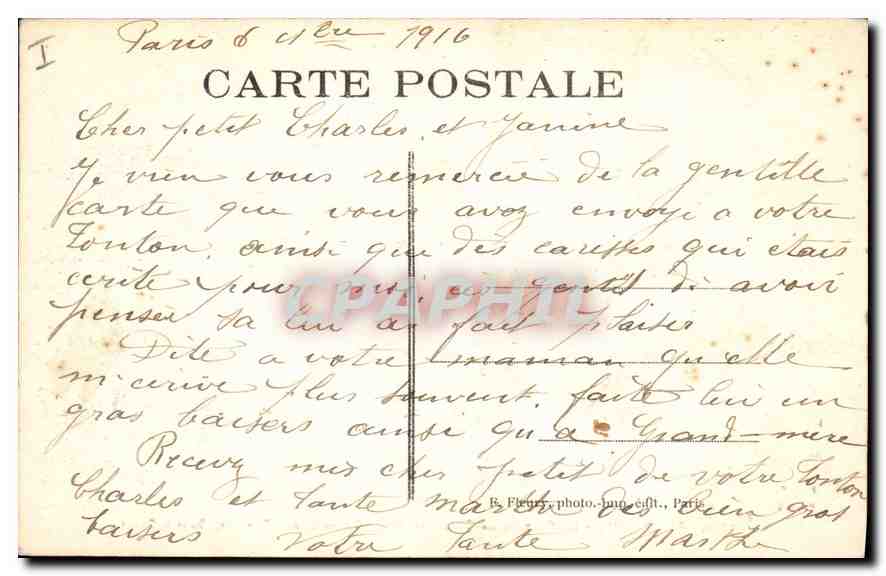 I
Paris 6 1bre 1916
CARTE POSTALE
Cher petit Charles et Janine
Je vien vous remercié de la gentille
carte que vous avez envoyé a votre
Tonton, ainsi que des caresses qui étais
écrite pour moi, gentil di avoir
penser sa lui ai fait plaisir
Dite a votre maman qu'elle
m'écrive plus souvent, faite lui un
gros baisers ainsi qu a Grand-mère
Recevez mes cher petit de votre Tonton
Charles et tante marthe des bien gros
E. Fleury, photo.-imp. édit., Paris
baisers Votre Tante Marthe
CPAPHIL